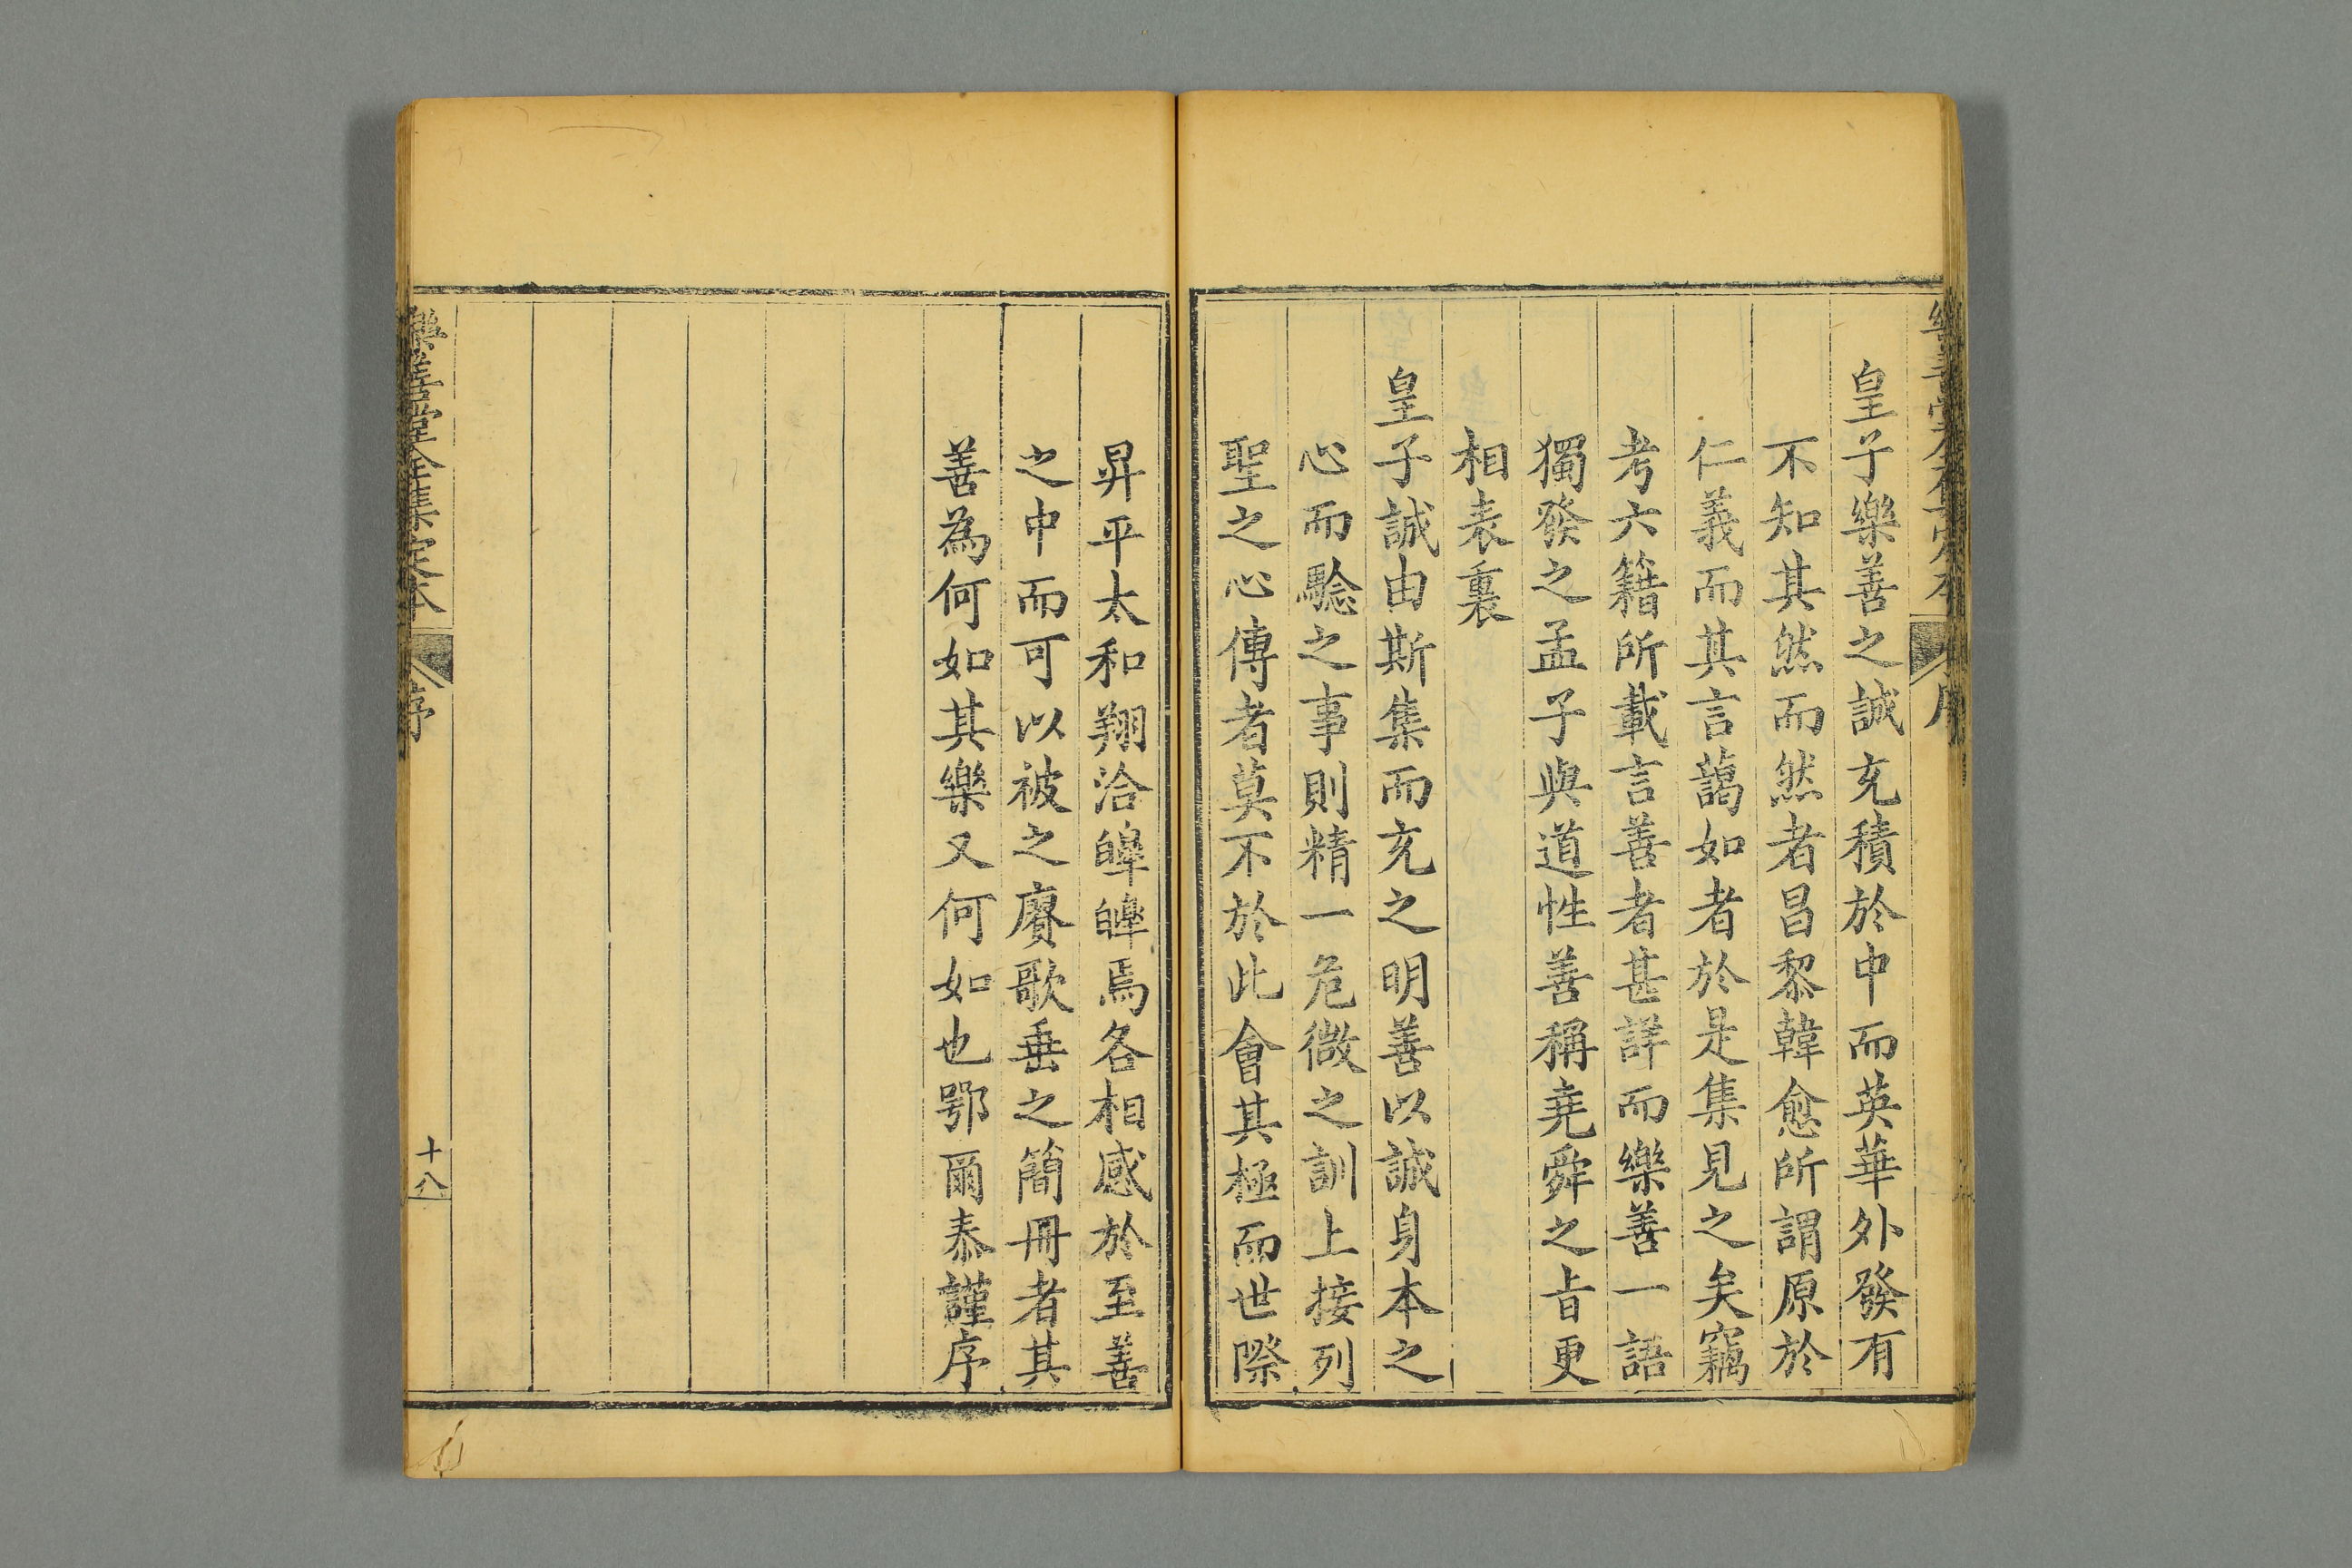 皇子樂善之誠充積於中而英華外發有
不知其然而然者昌黎韓愈所謂原於
仁義而其言藹如者於是集見之矣竊
考六籍所載言善者甚詳而樂善一語
獨發之孟子與道性善稱堯舜之㫖更
相表裏
皇子誠由斯集而充之明善以誠身本之
心而驗之事則精一危微之訓上接列
聖之心傳者莫不於此會其極而世際
昇平太和翔洽皥皥焉各相感於至善
之中而可以被之賡歌垂之簡冊者其
善為何如其樂又何如也鄂爾泰謹序
樂善堂全集定本
序
十八